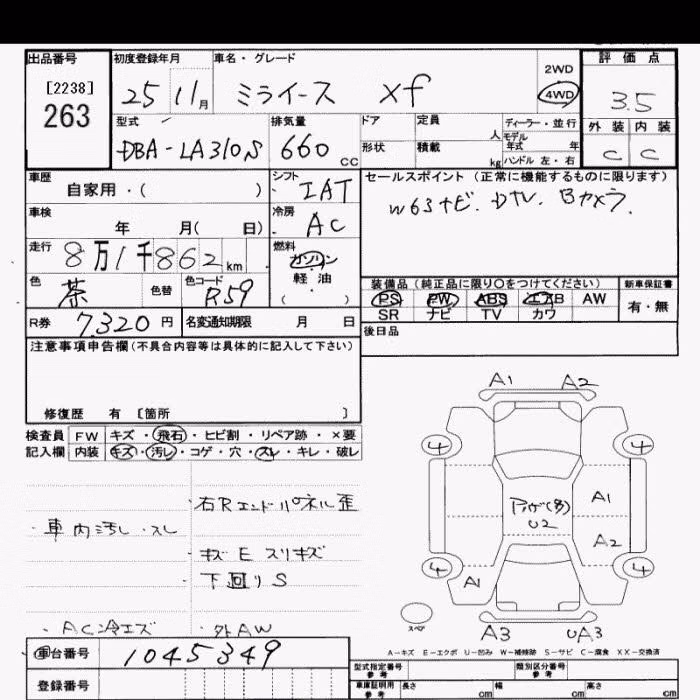 出品番号 初度登録年月 車名・グレード 2WD 評価点
[2238] 25 11月 ミライース Xf 4WD 3.5
263
型式 排気量 ドア 定員 人 ディーラー・並行 外装 内装
DBA-LA310S 660cc 形状 積載 kg モデル年式 年 ハンドル 左・右 C C
車歴 シフト セールスポイント (正常に機能するものに限ります)
自家用・( ) IAT W63ナビ. DTV. Bカメラ.
車検 年 月( 日) 冷房 AC
走行 8万1千862km 燃料 ガソリン
軽油
( )
色 茶 色替 色コード R59
装備品 (純正品に限り〇をつけてください) 新車保証書
PS PW ABS エアB AW 有・無
SR ナビ TV カワ
R券 7320円 名変通知期限 月 日
後日品
注意事項申告欄(不具合内容等は具体的に記入して下さい)
修復歴 有 [箇所 ]
検査員 FW キズ・飛石・ヒビ割・リペア跡・×要
記入欄 内装 キズ・汚レ・コゲ・穴・スレ・キレ・破レ
A1 A2
4 4
・右Rエンドパネル歪
A1
・車内汚レ.スレ
U2
・キズ E スリキズ
A2
下回りS
4 4
A1
・AC冷エズ ・外AW
スペア
A3 UA3
A-キズ E-エクボ U-凹み W-補修跡 S-サビ C-腐食 XX-交換済
車台番号 1045349
型式指定番号 参考 類別区分番号 参考
登録番号
車庫証明用 参考 長さ cm 幅 cm 高さ cm